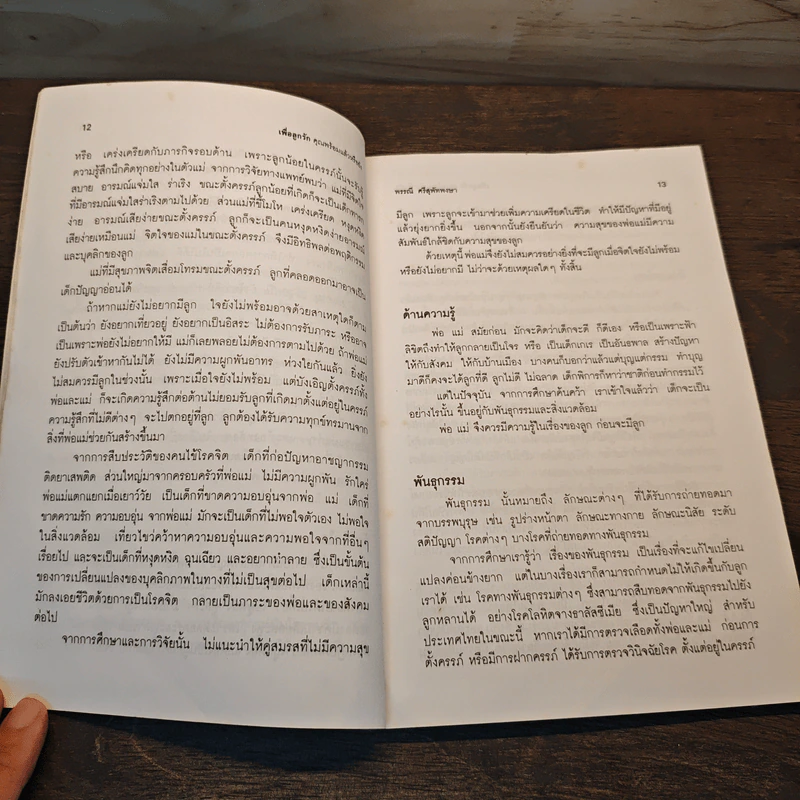 12
เพื่อลูกรัก คุณพร้อมแล้วหรือยัง
หรือ เคร่งเครียดกับภารกิจรอบด้าน เพราะลูกน้อยในครรภ์นั้นจะรับรู้
ความรู้สึกนึกคิดทุกอย่างในตัวแม่ จากการวิจัยทางแพทย์พบว่า แม่ที่มีจิตใจ
สบาย อารมณ์แจ่มใส ร่าเริง ขณะตั้งครรภ์ลูกน้อยที่เกิดก็จะเป็นเด็กทารก
ที่มีอารมณ์แจ่มใสร่าเริงตามไปด้วย ส่วนแม่ที่ขี้โมโห เคร่งเครียด หงุดหงิด
ง่าย อารมณ์เสียง่ายขณะตั้งครรภ์ ลูกก็จะเป็นคนหงุดหงิดง่ายอารมณ์
เสียง่ายเหมือนแม่ จิตใจของแม่ในขณะตั้งครรภ์ จึงมีอิทธิพลต่อพฤติกรรม
และบุคลิกของลูก
แม่ที่มีสุขภาพจิตเสื่อมโทรมขณะตั้งครรภ์ ลูกที่คลอดออกมาอาจเป็น
เด็กปัญญาอ่อนได้
ถ้าหากแม่ยังไม่อยากมีลูก ใจยังไม่พร้อมอาจด้วยสาเหตุใดก็ตาม
เป็นต้นว่า ยังอยากเที่ยวอยู่ ยังอยากเป็นอิสระ ไม่ต้องการรับภาระ หรืออาจ
เป็นเพราะพ่อยังไม่อยากให้มี แม่ก็เลยพลอยไม่ต้องการตามไปด้วย ถ้าพ่อแม่
ยังปรับตัวเข้าหากันไม่ได้ ยังไม่มีความผูกพันอาทร ห่วงใยกันแล้ว ยิ่งยัง
ไม่สมควรมีลูกในช่วงนั้น เพราะเมื่อใจยังไม่พร้อม แต่บังเอิญตั้งครรภ์ทั้ง
พ่อและแม่ ก็จะเกิดความรู้สึกต่อต้านไม่ยอมรับลูกที่เกิดมาตั้งแต่อยู่ในครรภ์
ความรู้สึกที่ไม่ดีต่างๆ จะไปตกอยู่ที่ลูก ลูกต้องได้รับความทุกข์ทรมานจาก
สิ่งที่พ่อแม่ช่วยกันสร้างขึ้นมา
จากการสืบประวัติของคนไข้โรคจิต เด็กที่ก่อปัญหาอาชญากรรม
ติดยาเสพติด ส่วนใหญ่มาจากครอบครัวที่พ่อแม่ ไม่มีความผูกพัน รักใคร่
พ่อแม่แตกแยกเมื่อเยาว์วัย เป็นเด็กที่ขาดความอบอุ่นจากพ่อ แม่ เด็กที่
ขาดความรัก ความอบอุ่น จากพ่อแม่ มักจะเป็นเด็กที่ไม่พอใจตัวเอง ไม่พอใจ
ในสิ่งแวดล้อม เที่ยวไขว่คว้าหาความอบอุ่นและความพอใจ จากที่อื่นๆ
เรื่อยไป และจะเป็นเด็กที่หงุดหงิด ฉุนเฉียว และอยากทำลาย ซึ่งเป็นขั้นต้น
ของการเปลี่ยนแปลงของบุคลิกภาพในทางที่ไม่เป็นสุขต่อไป เด็กเหล่านี้
มักลงเอยชีวิตด้วยการเป็นโรคจิต กลายเป็นภาระของพ่อและของสังคม
ต่อไป
จากการศึกษาและการวิจัยนั้น ไม่แนะนำให้คู่สมรสที่ไม่มีความสุข
พรรณี ศรีสุพัทพงษา
13
มีลูก เพราะลูกจะเข้ามาช่วยเพิ่มความเครียดในชีวิต ทำให้มีปัญหาที่มีอยู่
แล้วยุ่งยากยิ่งขึ้น นอกจากนั้นยังยืนยันว่า ความสุขของพ่อแม่มีความ
สัมพันธ์ใกล้ชิดกับความสุขของลูก
ด้วยเหตุนี้ พ่อแม่จึงยังไม่สมควรอย่างยิ่งที่จะมีลูกเมื่อจิตใจยังไม่พร้อม
หรือยังไม่อยากมี ไม่ว่าจะด้วยเหตุผลใดๆ ทั้งสิ้น
ด้านความรู้
พ่อ แม่ สมัยก่อน มักจะคิดว่าเด็กจะดี ก็ดีเอง หรือเป็นเพราะฟ้า
ลิขิตถึงทำให้ลูกกลายเป็นโจร หรือ เป็นเด็กเกเร เป็นอันธพาล สร้างปัญหา
ให้กับสังคม ให้กับบ้านเมือง บางคนก็บอกว่าแล้วแต่บุญแต่กรรม ทำบุญ
มาดีก็คงจะได้ลูกที่ดี ลูกไม่ดี ไม่ฉลาด เด็กพิการก็หาว่าชาติก่อนทำกรรมไว้
แต่ในปัจจุบัน จากการศึกษาค้นคว้า เราเข้าใจแล้วว่า เด็กจะเป็น
อย่างไรนั้น ขึ้นอยู่กับพันธุกรรมและสิ่งแวดล้อม
พ่อ แม่ จึงควรมีความรู้ในเรื่องของลูก ก่อนจะมีลูก
พันธุกรรม
พันธุกรรม นั้นหมายถึง ลักษณะต่างๆ ที่ได้รับการถ่ายทอดมา
จากบรรพบุรุษ เช่น รูปร่างหน้าตา ลักษณะทางกาย ลักษณะนิสัย ระดับ
สติปัญญา โรคต่างๆ บางโรคที่ถ่ายทอดทางพันธุกรรม
จากการศึกษาเรารู้ว่า เรื่องของพันธุกรรม เป็นเรื่องที่จะแก้ไขเปลี่ยน
แปลงค่อนข้างยาก แต่ในบางเรื่องเราก็สามารถกำหนดไม่ให้เกิดขึ้นกับลูก
เราได้ เช่น โรคทางพันธุกรรมต่างๆ ซึ่งสามารถสืบทอดจากพันธุกรรมไปยัง
ลูกหลานได้ อย่างโรคโลหิตจางธาลัสซีเมีย ซึ่งเป็นปัญหาใหญ่ สำหรับ
ประเทศไทยในขณะนี้ หากเราได้มีการตรวจเลือดทั้งพ่อและแม่ ก่อนการ
ตั้งครรภ์ หรือมีการฝากครรภ์ ได้รับการตรวจวินิจฉัยโรค ตั้งแต่อยู่ในครรภ์